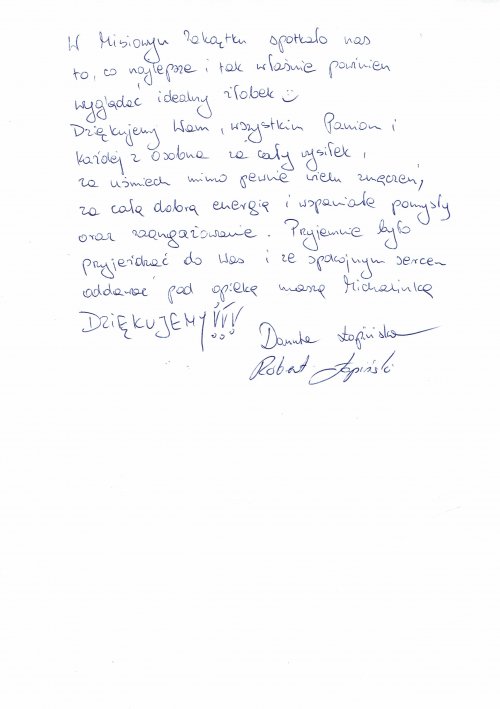 W Misiowym Zakątku spotkało nas
to, co najlepsze i tak właśnie powinien
wyglądać idealny żłobek
Dziękujemy Wam, wszystkim Paniom i
każdej z osobna za cały wysiłek,
za uśmiech mimo pewnie wielu zmęczeń,
za całą dobrą energię i wspaniałe pomysły
oraz zaangażowanie. Przyjemnie było
przyjeżdżać do Was i ze spokojnym sercem
oddawać pod opiekę naszą Michalinkę
DZIĘKUJEMY!!!
Danuta Łapińska
Robert Łapiński